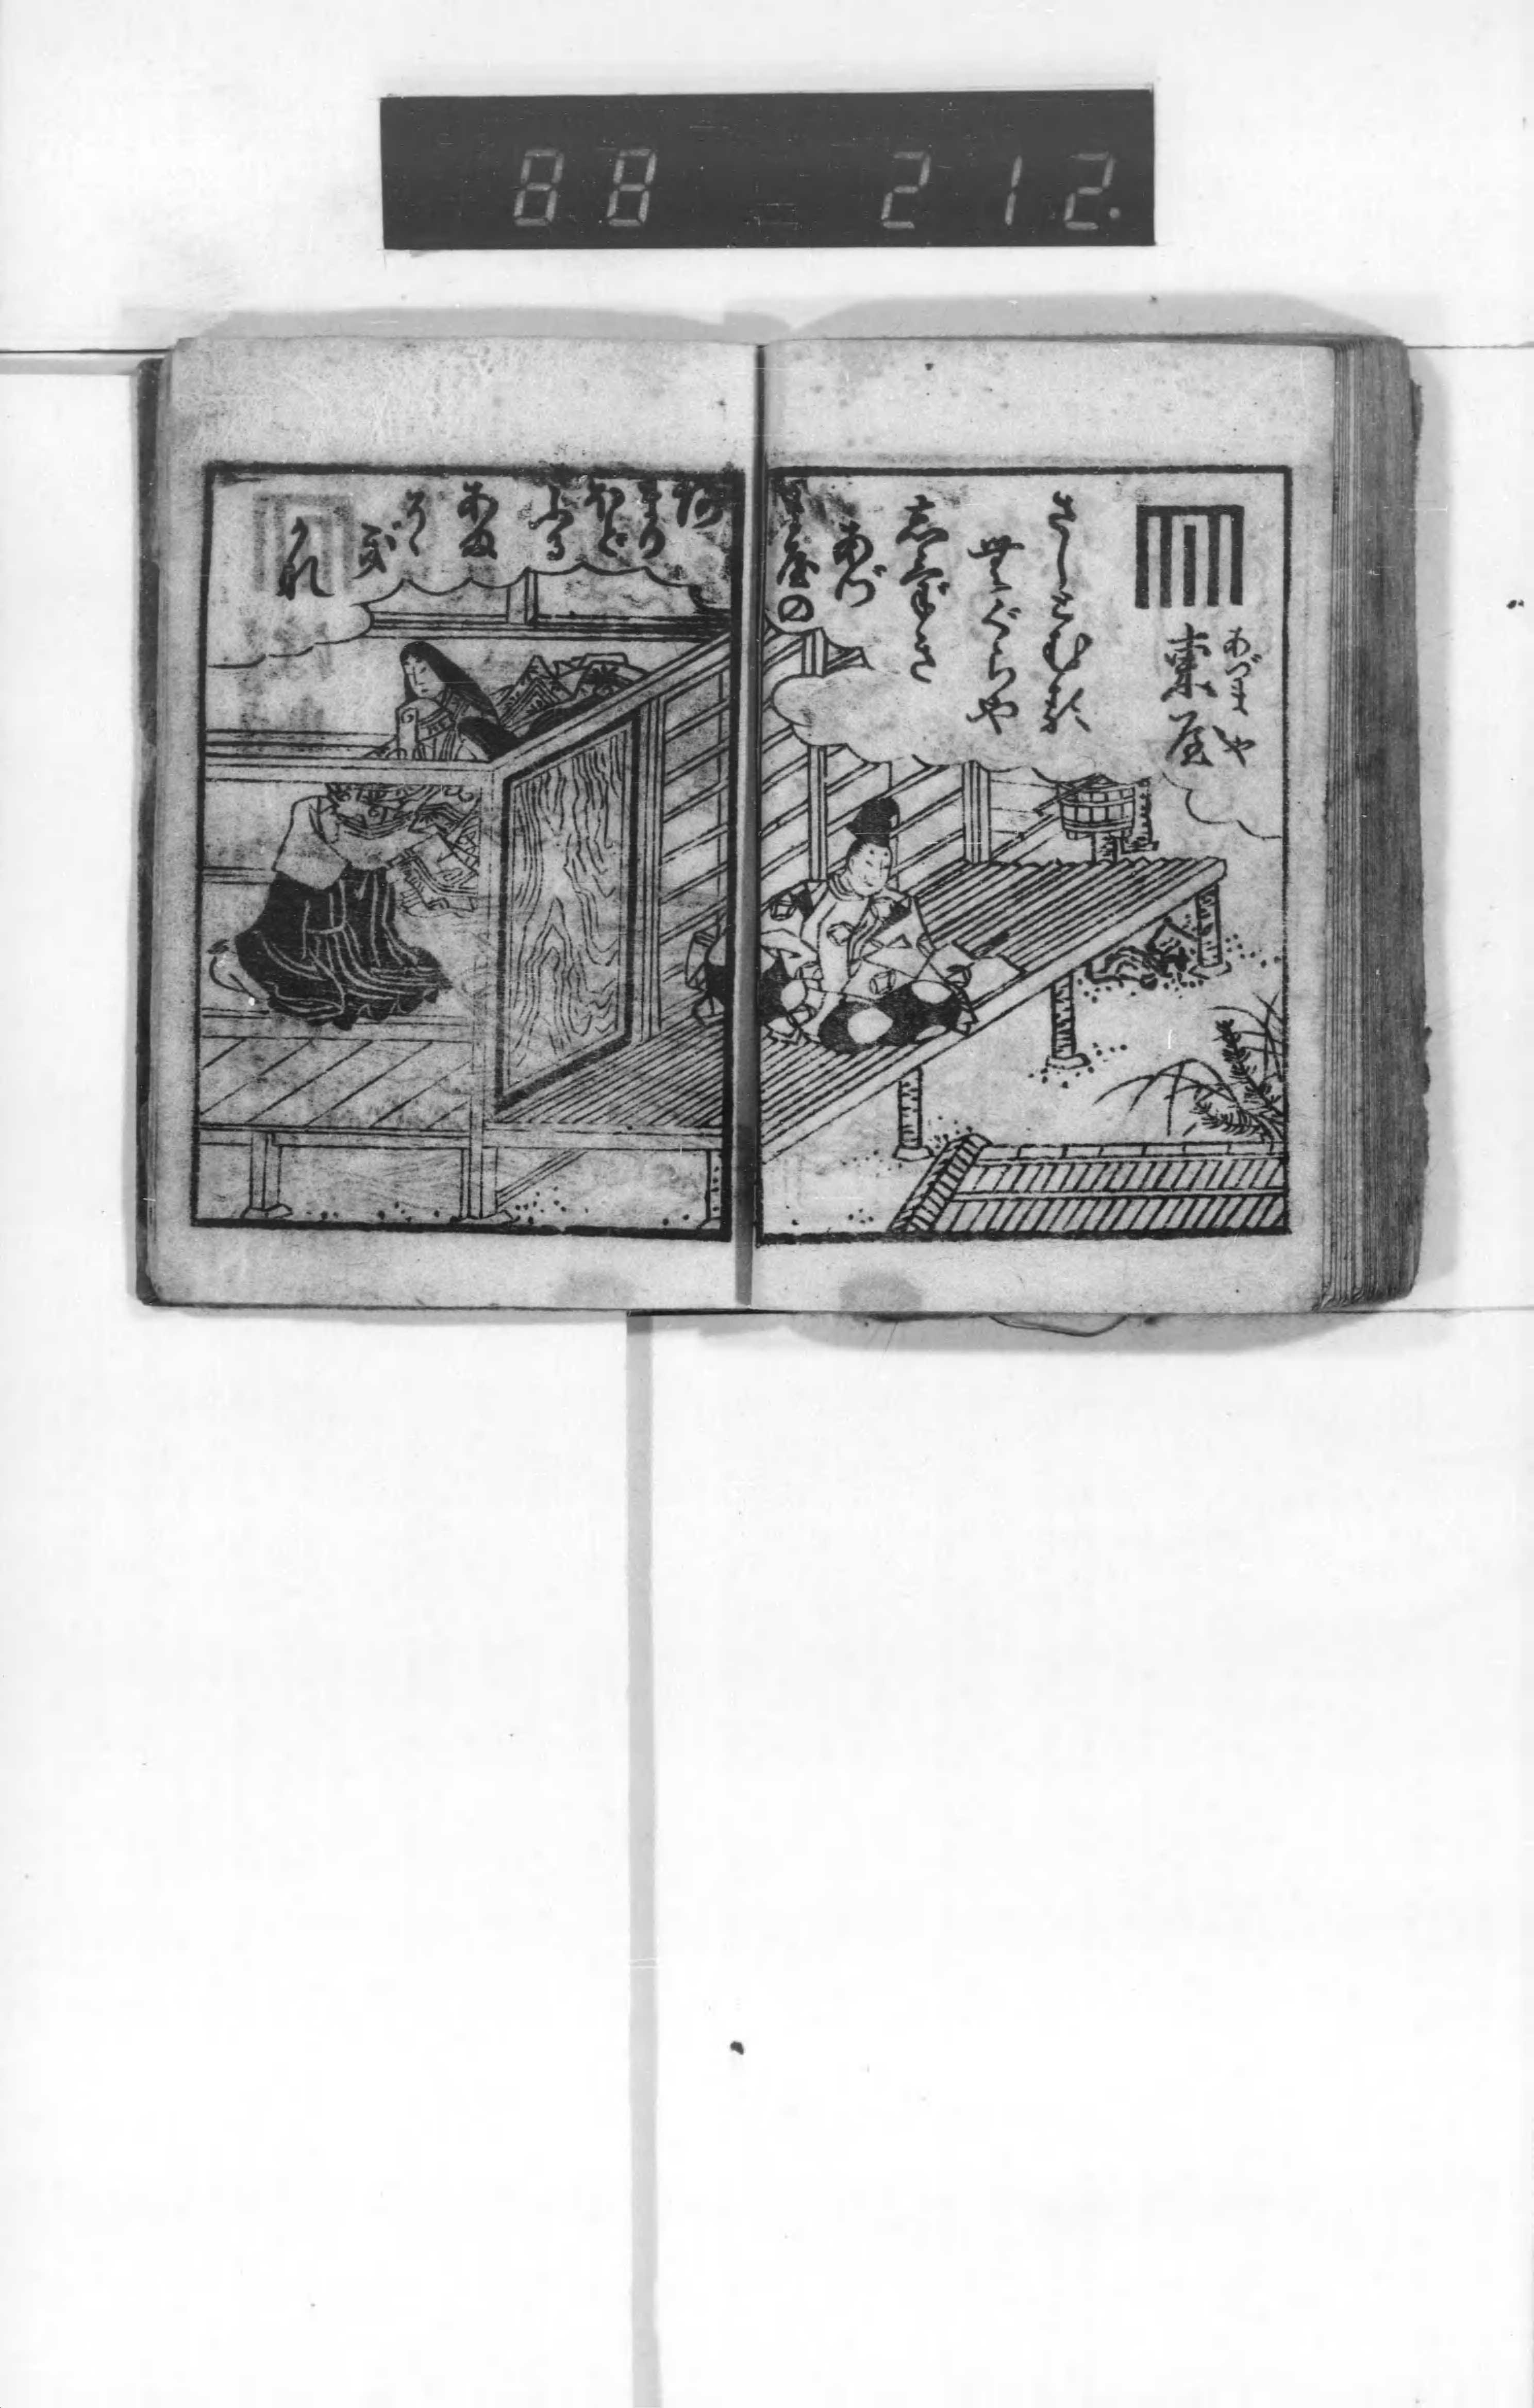 88 212.
東屋
あづまや
さしとむる
むぐらや
志げき
あづ
ま屋の
あ
まり
ほど
ふる
あま
そゝ
ぎ
かな